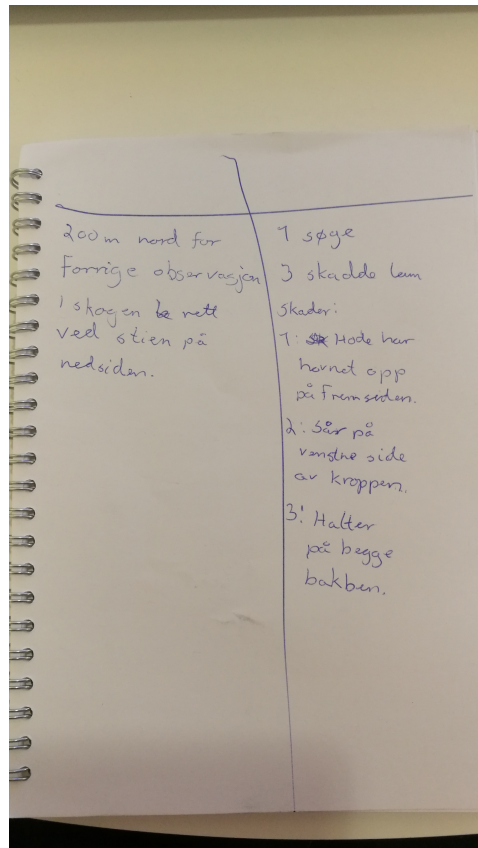 200m nord for
Forrige observasjon
I skogen rett
ved stien på
nedsiden.
1 søye
3 skadde lam
skader:
1: Hode har
hovnet opp
på fremsiden.
2: Sår på
venstre side
av kroppen.
3: Halter
på begge
bakben.